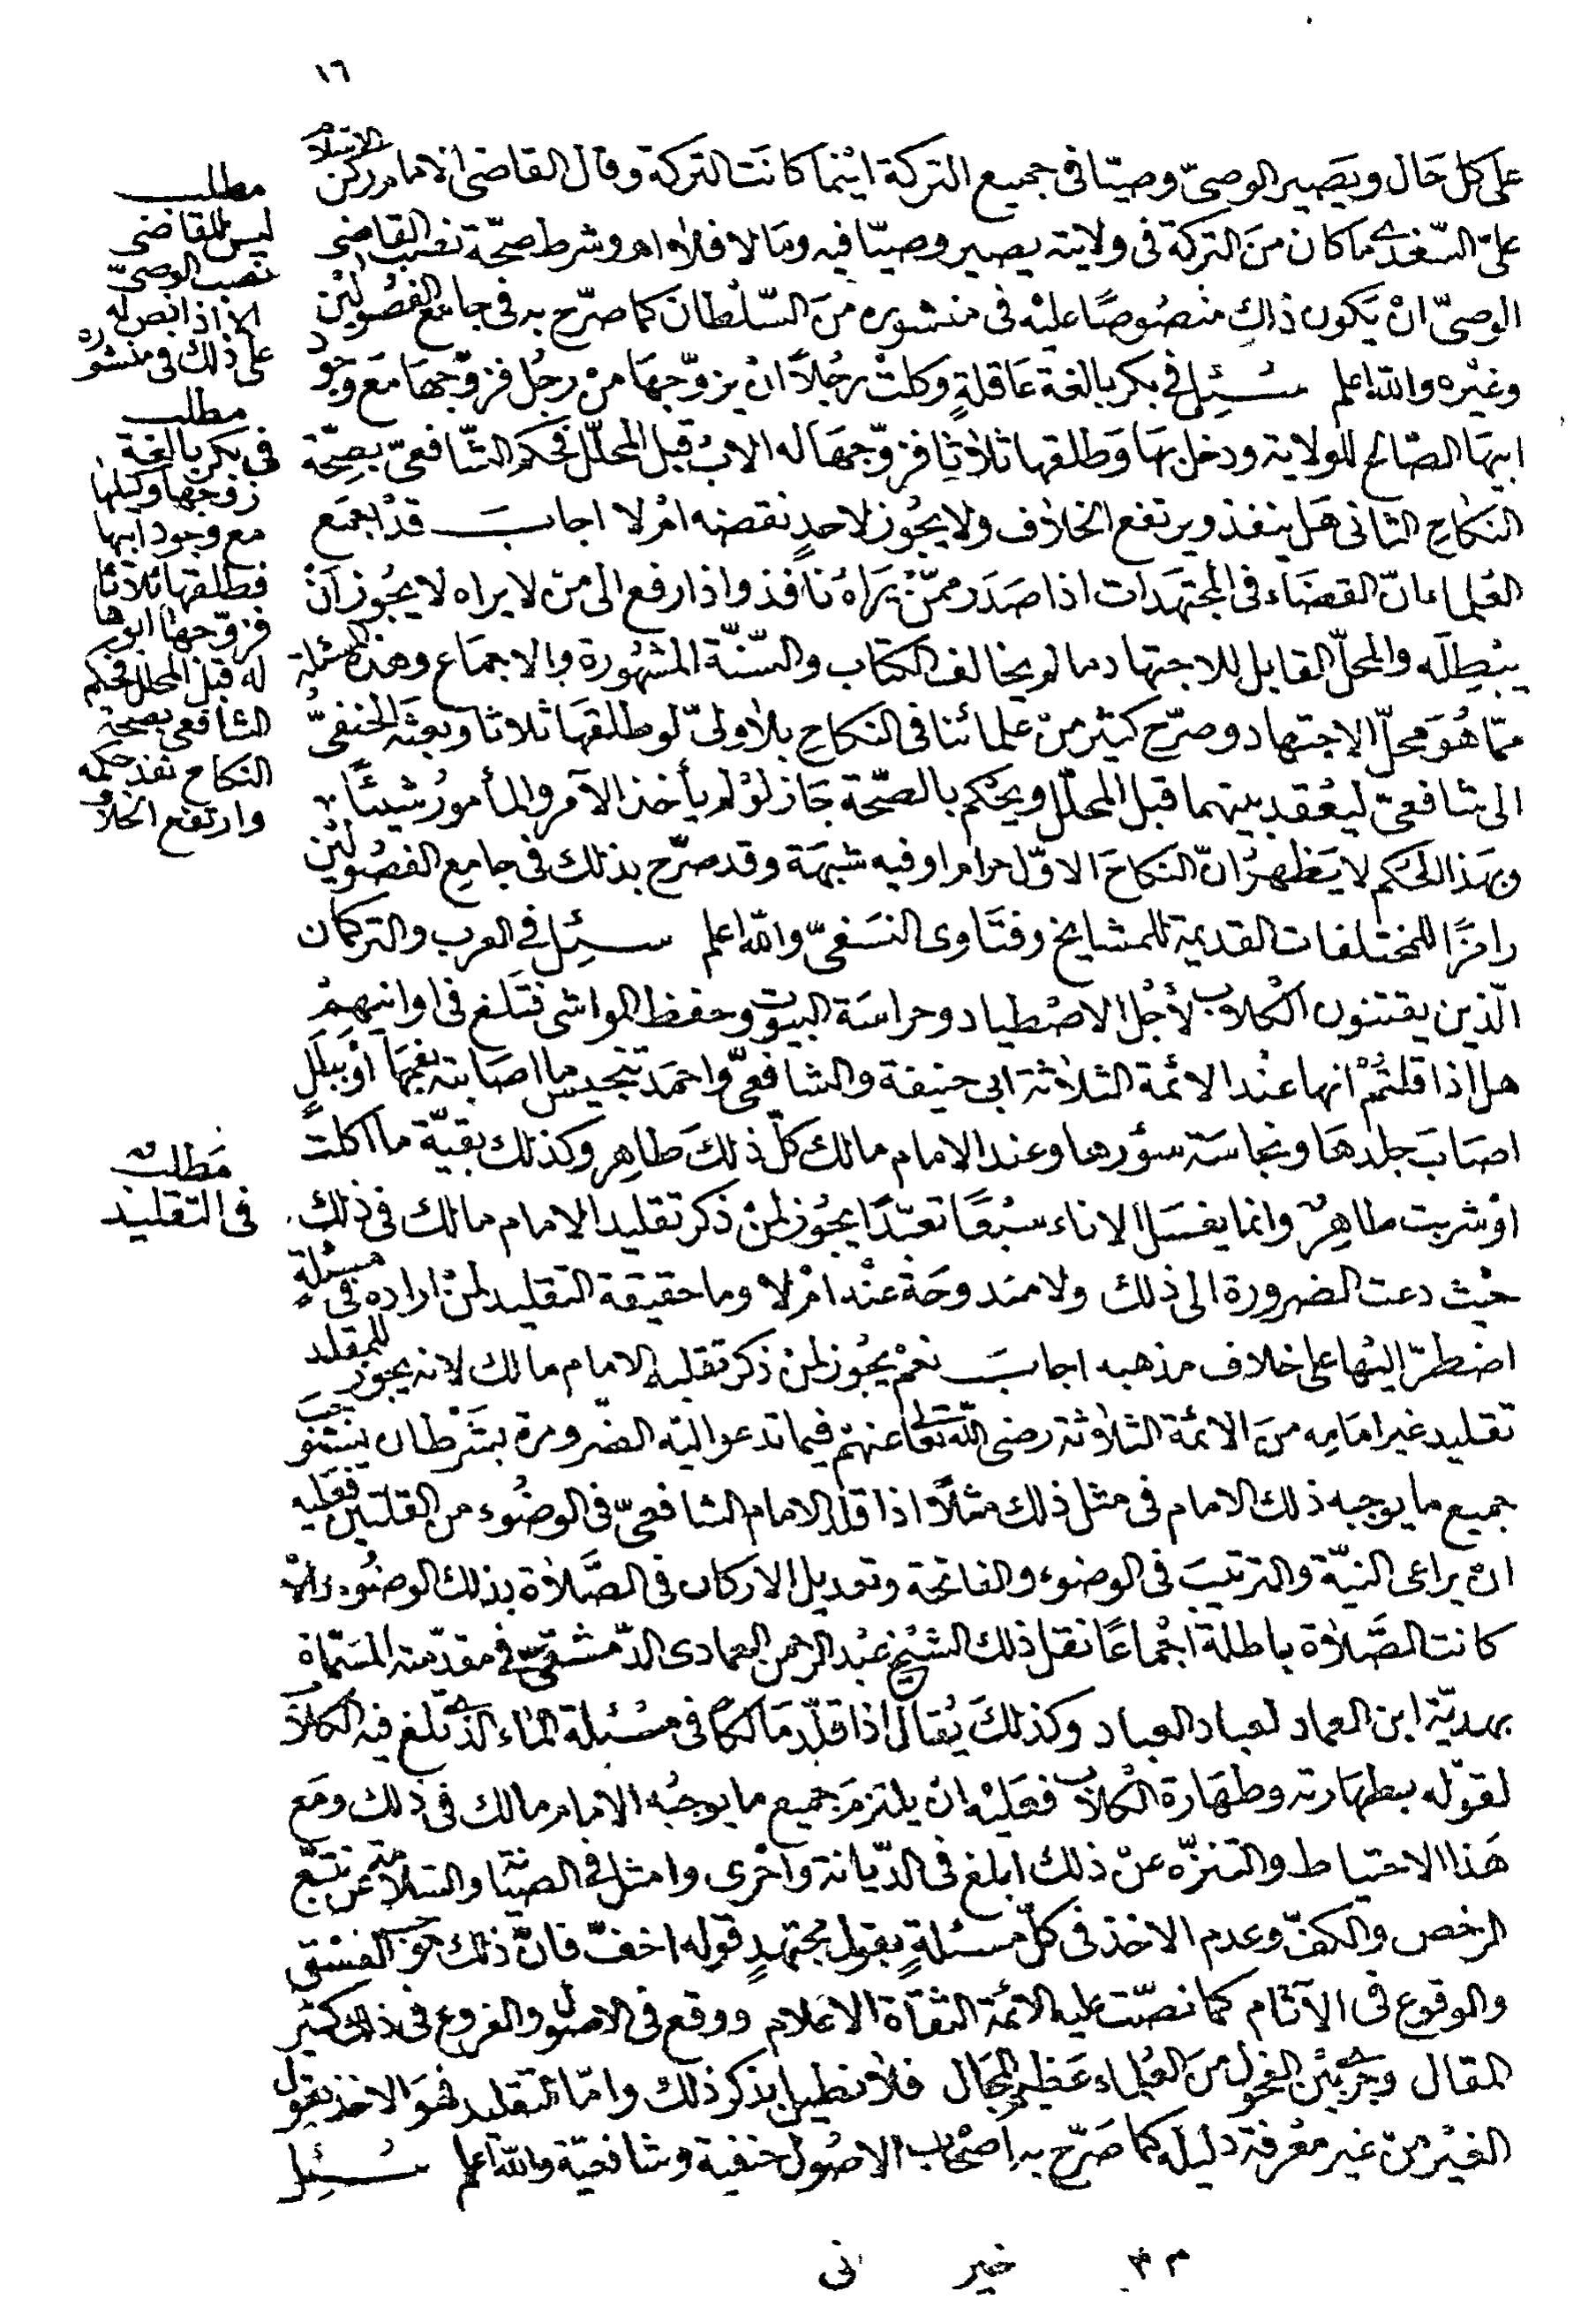 ١٦
على كل حال ويصير الوصىّ وصيّا فى جميع التركة اينما كانت التركة وقال القاضى الامام ركن الاسلام
علىّ السّغدى ما كان من التركة فى ولايته يصير وصيّا فيه وما لا فلا اهـ وشرط صحّة نصب القاضى
الوصىّ ان يكون ذلك منصوصًا عليه فى منشوره من السّلطان كما صرّح به فى جامع الفصولين
وغيره والله اعلم سئل فى بكر بالغة عاقلةٍ وكلت رجُلاً ان يزوّجها من رجُل فزوّجها مع وجود
ابيها الصّالح للولاية ودخل بها وطلقها ثلاثا فزوّجها له الاب قبل المحلّل فحكم الشّافعىّ بصحّة
النكاح الثانى هل ينفذ ويرتفع الخلاف ولا يجوز لاحدٍ نقضه ام لا اجاب قد اجمع
العُلماء انّ القضاء فى المجتهدات اذا صدر ممّن يراه نافذ واذا رفع الى من لا يراه لا يجوز ان
يبطله والمحلّ القابل للاجتهاد ما لم يخالف الكتاب والسّنّة المشهورة والاجماع وهذه المسئلة
ممّا هو محلّ الاجتهاد وصرّح كثير من علمائنا فى النكاح بلا ولىّ لو طلقها ثلاثا وبعثه الحنفىّ
الى شافعىّ ليعقد بينهما قبل المحلّل ويحكم بالصّحة جاز لو لم يأخذ الآمر والمأمور شيئًا
وبهذا الحكم لا يظهر انّ النكاح الاوّل حرام او فيه شبهة وقد صرّح بذلك فى جامع الفصولين
رامزًا للمختلفات القديمة للمشايخ وفتاوى النسفىّ والله اعلم سئل فى العرب والتركمان
الّذين يقتنون الكلاب لأجل الاصطياد وحراسة البيوت وحفظ المواشى فتلغ فى اوانيهم
هل اذا قلتم انها عند الائمة الثلاثة ابى حنيفة والشافعىّ واحمد تنجيس ما اصابته بفمها او ببللٍ
اصاب جلدها ونجاسة سؤرها وعند الامام مالك كلّ ذلك طاهر وكذلك بقيّة ما اكلت
او شربت طاهرٌ وانما يغسل الاناء سبعًا تعبّدًا يجوز لمن ذكر تقليد الامام مالك فى ذلك
حيث دعت الضرورة الى ذلك ولا مندوحة عنه ام لا وما حقيقة التقليد لمن اراده فى مسئلةٍ
اضطرّ اليها على خلاف مذهبه اجاب نعم يجوز لمن ذكر تقليد الامام مالك لانه يجوز للمقلد
تقليد غير امامه من الائمة الثلاثة رضى الله تعالى عنهم فيما تدعو اليه الضّرورة بشرط ان يستوجب
جميع ما يوجبه ذلك الامام فى مثل ذلك مثلاً اذا قلد الامام الشافعىّ فى الوضوء من القلتين فعليه
ان يراعى النيّة والترتيب فى الوضوء والفاتحة وتعديل الاركان فى الصّلاة بذلك الوضوء والا
كانت الصّلاة باطلة اجماعًا نقل ذلك الشيخ عبد الرحمن العمادى الدّمشقىّ فى مقدّمته المسمّاة
بهديّة ابن العماد لعباد العباد وكذلك يُقال اذا قلّد مالكًا فى مسئلة الماء الذى تلغ فيه الكلاب
لقوله بطهارته وطهارة الكلاب فعليه ان يلتزم جميع ما يوجبُه الامام مالك فى ذلك ومع
هذا الاحتياط والتنزّه عن ذلك ابلغ فى الدّيانة وأحرى وامثل فى الصيانة والسلامة عن تتبّع
الرخص والكفّ وعدم الاخذ فى كلّ مسئلةٍ بقول مجتهدٍ قوله اخفّ فانّ ذلك هو الفسق
والوقوع فى الآثام كما نصّت عليه الائمة الثقاة الاعلام ووقع فى الاصول والفروع فى ذلك كثير
المقال وجرى بين الفحول من العُلماء عظيم المجال فلا نطيل بذكر ذلك وامّا التقليد فهو الاخذ بقول
الغير من غير معرفة دليله كما صرّح به اصحاب الاصول حنفية وشافعيّة والله اعلم سئل
مطلب
ليس للقاضى
نصب الوصىّ
الا اذا نص له
على ذلك فى منشوره
مطلب
فى بكر بالغة
زوجها وكيلها
مع وجود ابيها
فطلقها ثلاثا
فزوّجها ابوها
له قبل المحلل فحكم
الشافعى بصحة
النكاح نفذ حكمه
وارتفع الخلاف
مطلب
فى التقليد
خير
نى